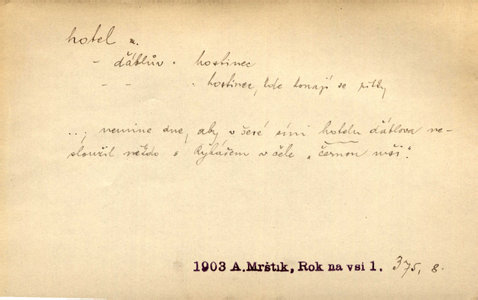 hotel m.
- ďáblův . hostinec
- - . hostinec, kde konají se pitky
..., nemine dne, aby v čeré síni hotelu ďáblova ne-
sloužil někdo s Rykášem v čele „černou mši".
1903 A.Mrštík, Rok na vsi 1. 375, 8.